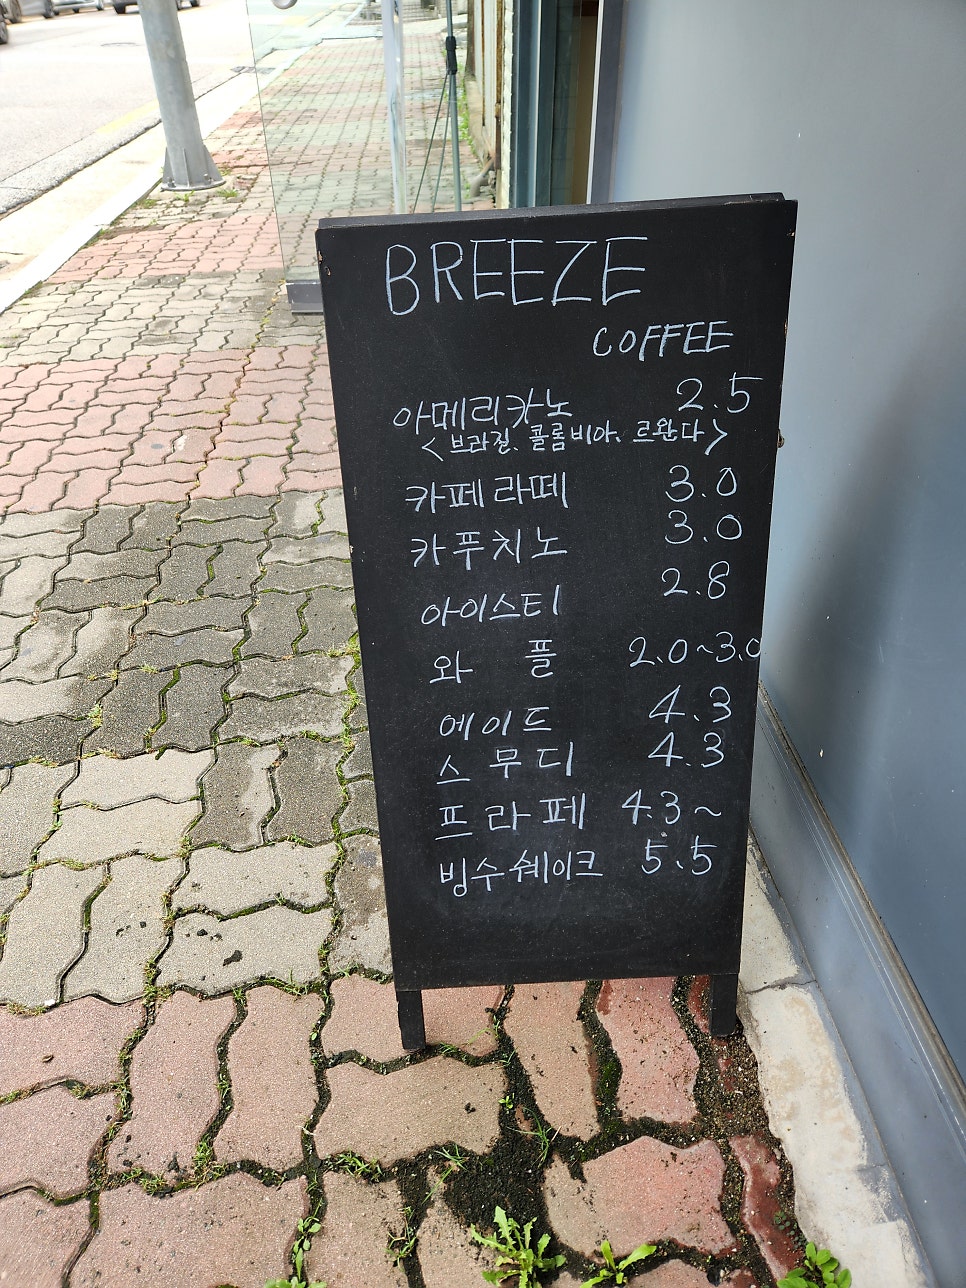 BREEZE
COFFEE
아메리카노 2.5
<브라질, 콜롬비아, 르완다>
카페라떼 3.0
카푸치노 3.0
아이스티 2.8
와플 2.0~3.0
에이드 4.3
스무디 4.3
프라페 4.3~
빙수쉐이크 5.5